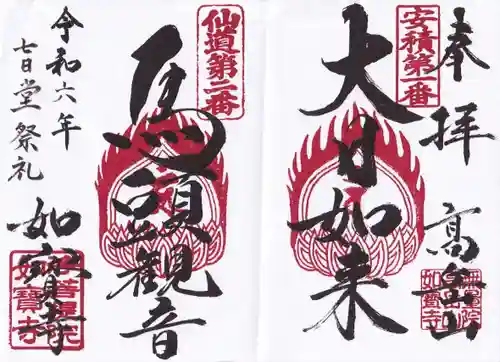 奉拝
安積第一番
大日如来
無量院
如寶寺
仙道第二番
馬頭観音
令和六年
七日堂祭礼
如寳寺
如寶寺